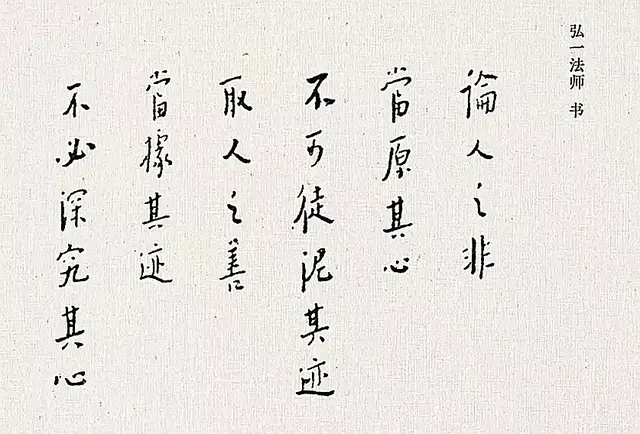 弘一法师 书
論人之非
當原其心
不可徒泥其迹
取人之善
當據其迹
不必深究其心